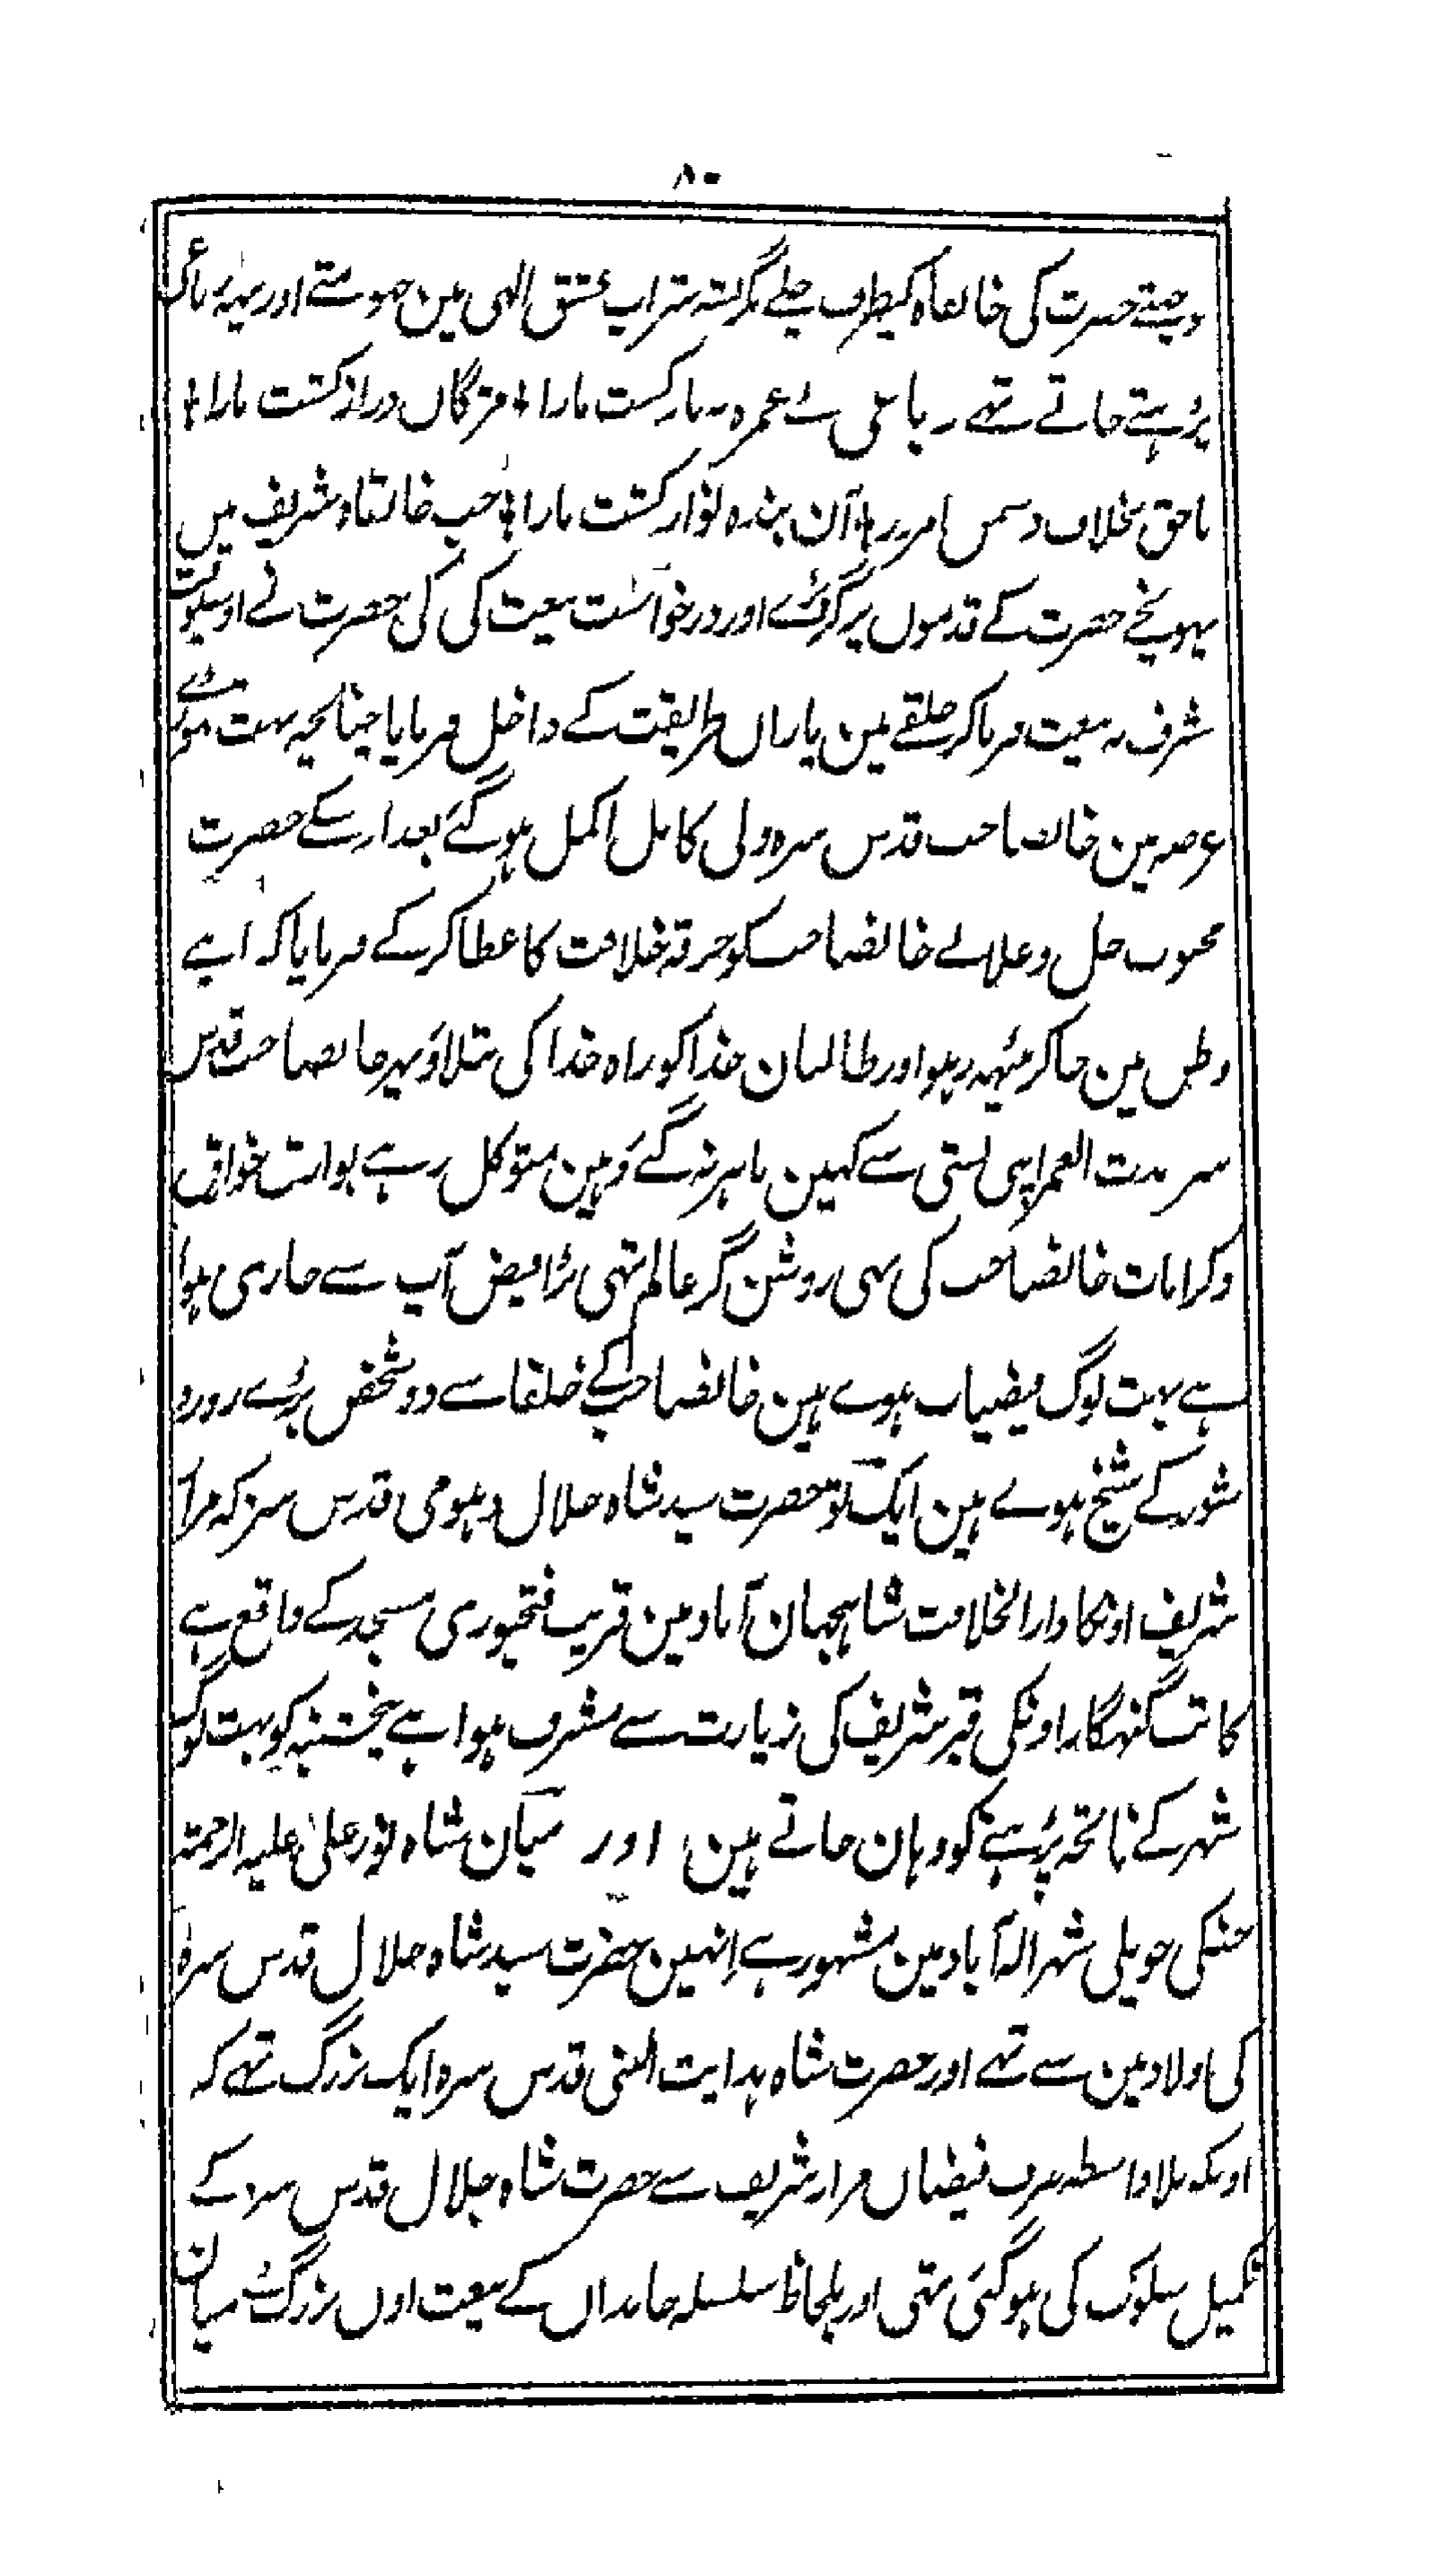 ۸۰
حضرت کی خانقاہ کیطرف چلے مگر نشہ شراب عشق الہی مین جھومتے اور یہہ رباعی
پڑہتے جاتے تھے رباعی نے غمزہ نہ ناز کشت مارا ؛ مژگاں دراز کشت مارا ؛
ناحق بخلاف دشمن آن بندہ نواز کشت مارا ؛ جب خانقاہ شریف میں
پہونچے حضرت کے قدموں پر گر پڑے اور درخواست بیعت کی کی حضرت نے اوسیوقت
شرف بہ بیعت فرماکر حلقے مین یاراں طریقت کے داخل فرمایا چنانچہ بہت تھوڑے
عرصہ مین خانصاحب قدس سرہ ولی کامل اکمل ہوگئے بعد ازسکے حضرت
محبوب جل و علا نے خانصاحب کو خرقہ خلافت کا عطا کر کے فرمایا کہ اپنے
وطن مین جاکر بیٹہہ رہو اور طالبان خدا کو راہ خدا کی بتلاؤ پہر خانصاحب قدس
سرہ مدت العمر اپنی بستی سے کہین باہر نہ گئے وہین متوکل رہے خوارق
و کرامات خانصاحب کی بہی روشن گر عالم تہی بڑا فیض آپ سے جاری ہوا
ہے بہت لوگ فیضیاب ہوے ہین خانصاحب کے خلفا سے دو شخص بڑے زور و
شور کے شیخ ہوے ہین ایک تو حضرت سید شاہ جلال قدس سرہ کہ مزار
شریف اونکا دارالخلافت شاہجہان آباد مین قریب فتحپوری مسجد کے واقع ہے
کاتب گنہگار اونکی قبر شریف کی زیارت سے مشرف ہوا ہے پنجشنبہ کو بہت لوگ
شہر کے فاتحہ پڑہنے کو وہان جاتے ہین اور میان شاہ نور علی علیہ الرحمۃ
جنکی حویلی شہر الہ آباد مین مشہور ہے انہین حضرت سید شاہ جلال قدس سرہ
کی اولاد مین سے تھے اور حضرت شاہ ہدایت قدس سرہ ایک بزرگ تھے کہ
اونکو بلا واسطہ صرف فیضاں مزار شریف سے حضرت شاہ جلال قدس سرہ کے
تکمیل سلوک کی ہوگئی تھی اور بلحاظ سلسلہ خانداں کے بیعت اوں بزرگ نے میان